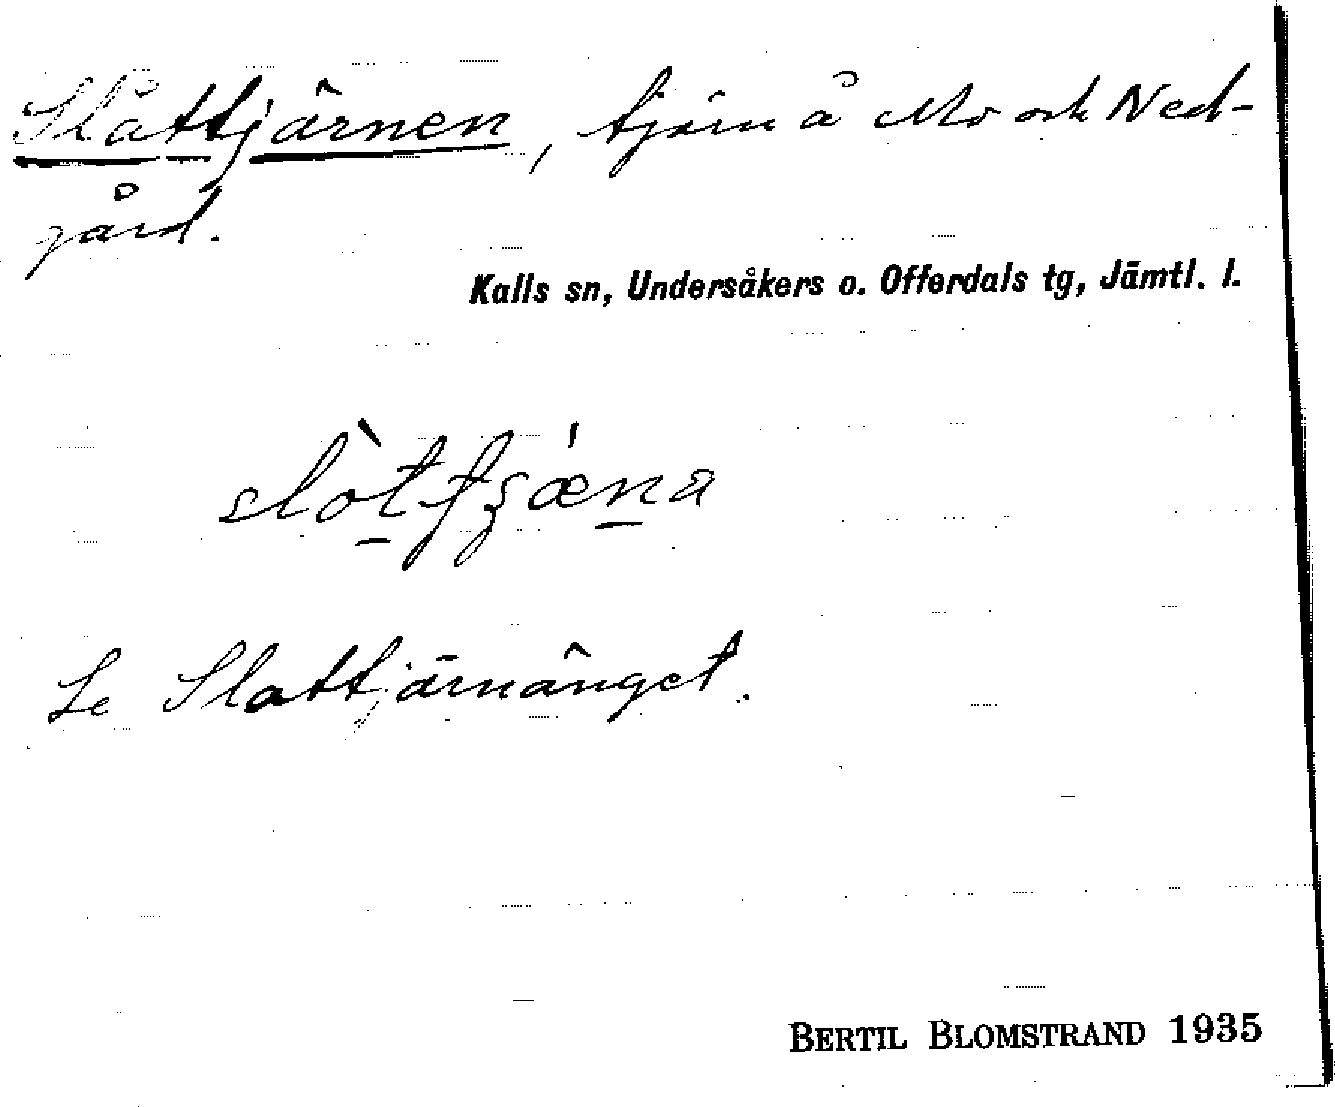 Slåttjärnen, tjärn å Mo och Ned-
gård.
Kalls sn, Undersåkers o. Offerdals tg, Jämtl. l.
Se Slåttjärnänget.
BERTIL BLOMSTRAND 1935